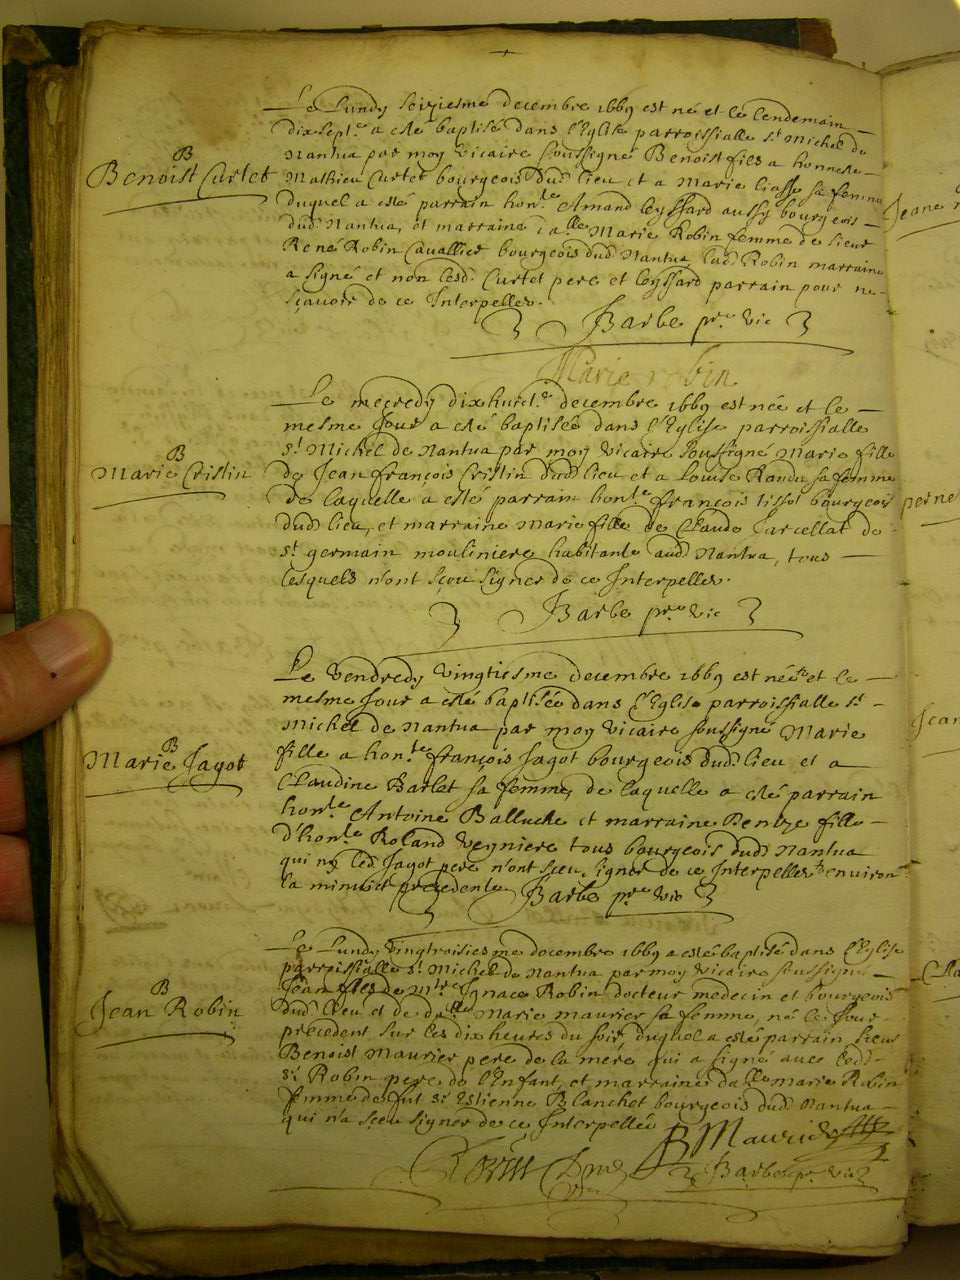 B
Benoist Curtet
Le Lundy seiziesme decembre 1669 est né et le lendemain
dix sept.e a esté baptisé dans l'Eglise parroissialle st Michel de
Nantua par moy vicaire soussigné Benoist fils a honneste
Mathieu Curtet bourgeois dud. lieu et a Marie liasse sa femme
duquel a esté parrain hon.le Amand leyssard aussy bourgeois
dud. Nantua, et marraine da.lle Marie Robin femme de sieur
René Robin Cauallier bourgeois dud. Nantua, lad. Robin marraine
a signé et non lesd. Curtet pere et leyssard parrain pour ne
sçauoir de ce Interpellez.
Barbe pr.e vic
Marie robin
B
Marie Cristin
Le mecredy dixhuict.e decembre 1669 est née et le
mesme Jour a esté baptisée dans l'Eglise parroissialle
st Michel de Nantua par moy vicaire soussigné Marie fille
de Jean françois Cristin dud. lieu et a Louise Randu sa femme
de laquelle a esté parrain hon.le françois tissot bourgeois
dud. lieu, et marraine Marie fille de Claude Carcellat de
st germain mouliniere habitante aud. Nantua, tous
lesquels n'ont sçeu signer de ce Interpellez.
Barbe pr.e vic
B
Marie Jagot
Le Vendredy vingtiesme decembre 1669 est née et le
mesme Jour a esté baptisée dans l'Eglise parroissialle st
Michel de Nantua par moy vicaire soussigné Marie
fille a hon.le françois Jagot bourgeois dud. lieu et a
Claudine Barlet sa femme, de laquelle a esté parrain
hon.le Antoine Balluche et marraine fille
d'hon.le Roland Veyniere tous bourgeois dud. Nantua
qui n'y led. Jagot pere n'ont sceu signer de ce Interpellez environ
la minuict precedente Barbe pr.e vic
B
Jean Robin
Le Lundy vingtroisiesme decembre 1669 a esté baptisé dans l'Eglise
parroissialle st Michel de Nantua par moy vicaire soussigné
Jean fils de M.tre Ignace Robin docteur medecin et bourgeois
dud. lieu et de da.lle Marie maurier sa femme, né le Jour
precedent sur les dix heures du soir, duquel a esté parrain sieur
Benoist Maurier pere de la mere qui a signé auec led.
sr Robin pere de l'Enfant, et marraine da.lle marie Robin
femme de fut sr Estienne Blanchet bourgeois dud. Nantua
qui n'a sçeu signer de ce Interpellée
B Maurier
Robin Barbe pr.e vic